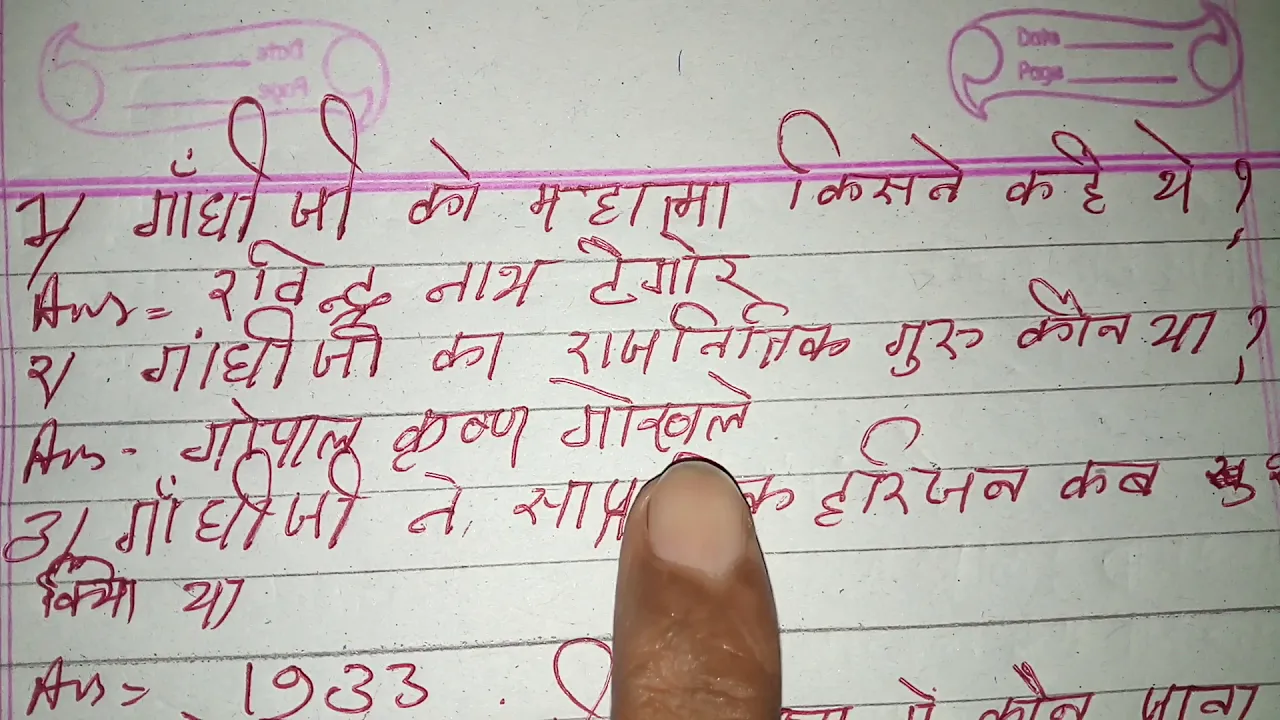 Date
Page
Date
Page
1/ गाँधी जी को महात्मा किसने कहे थे ?
Ans = रविन्द्र नाथ टैगोर
२/ गांधी जी का राजनितिक गुरु कौन था ?
Ans - गोपाल कृष्ण गोखले
3/ गाँधी जी ने हरिजन कब
किया था
Ans = 1933
में कौन जाना